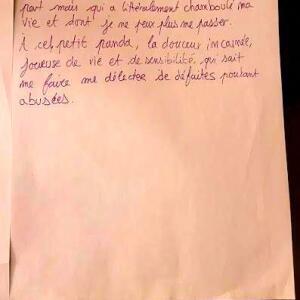 part mais qui a littéralement chamboulé ma
vie et dont je ne peux plus me passer.
À cet petit panda, la douceur incarnée,
joueuse de vie et de sensibilité, qui sait
me faire me délecter de défaites pourtant
abusées.